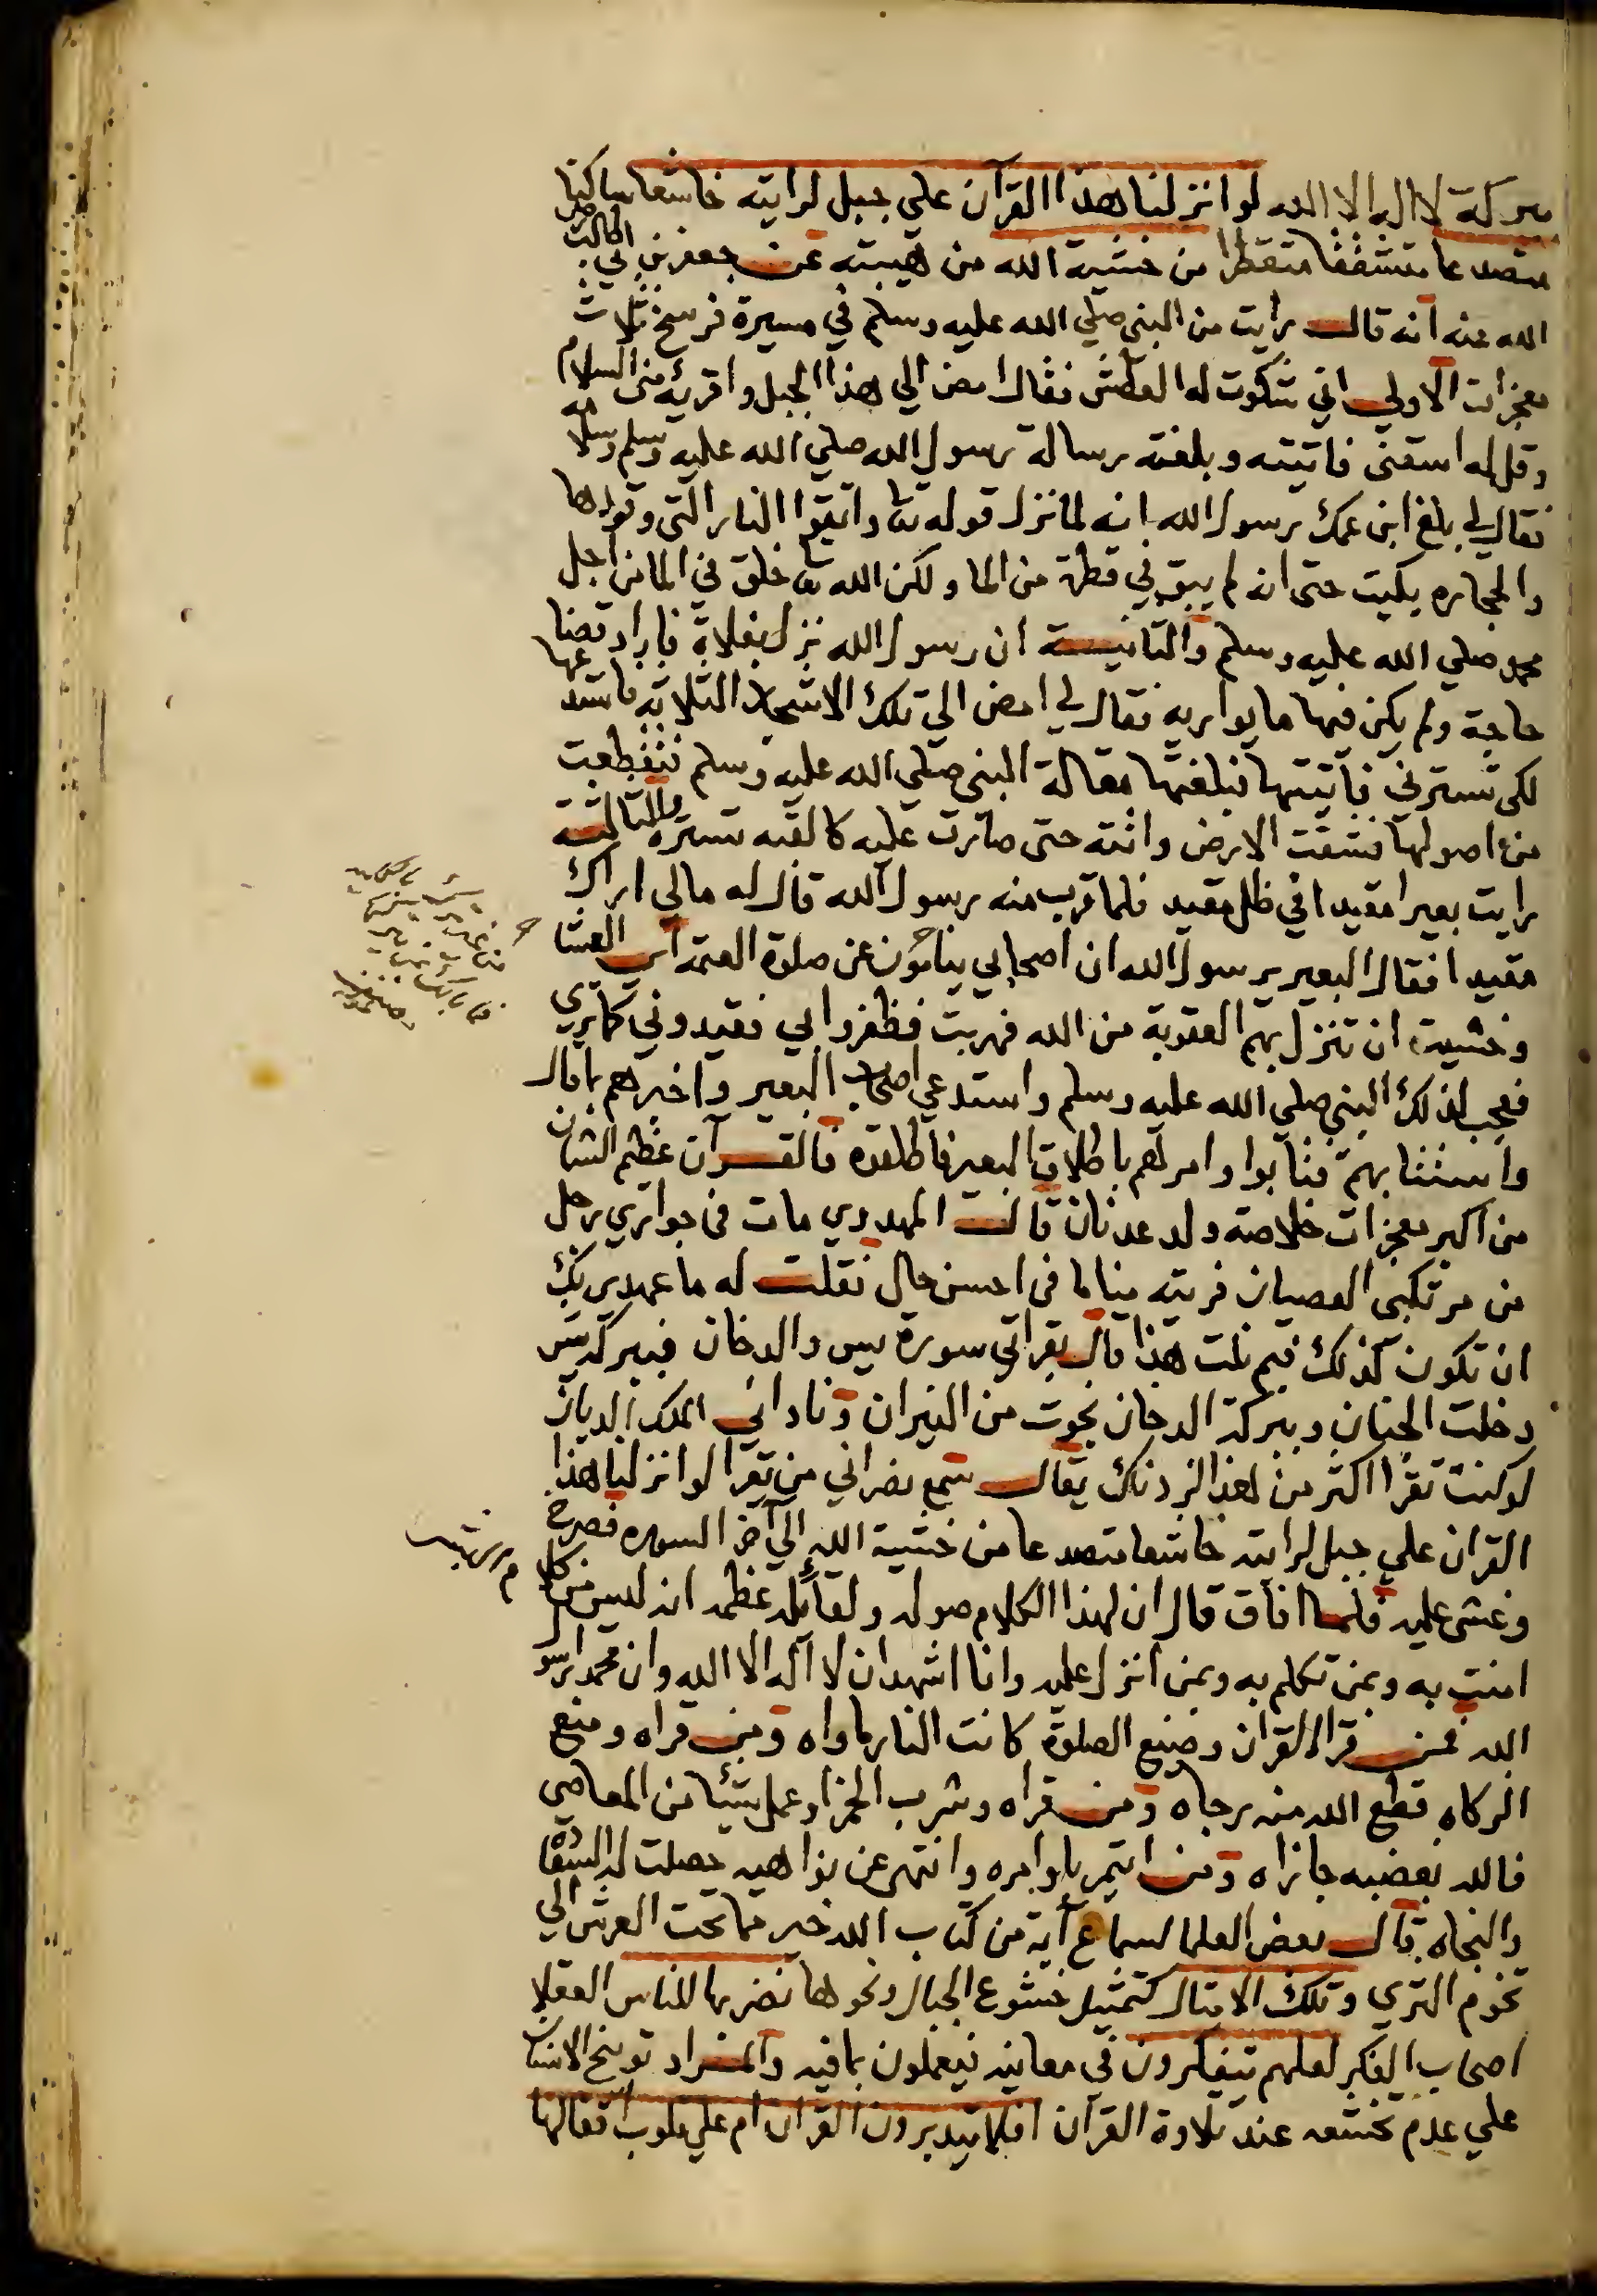 ببركة لا اله الا الله لو انزلنا هذا القرآن علي جبل لرايته خاشعا ساكنا
متصدعا متشققا متفطرا من خشية الله من هيبته عن جعفر بن ابي طالب رضي
الله عنه انه قال رأيت من النبي صلي الله عليه وسلم في مسيرة فرسخ ثلاث
معجزات الاولي اني شكوت له العطش فقال امض الي هذا الجبل واقريه مني السلام
وقل له اسقني فاتيته وبلغته رسالة رسول الله صلي الله عليه وسلم وسلامه
فقال لي بلغ ابن عمك رسول الله انه لما نزل قوله تعا واتقوا النار التي وقودها
والحجاره بكيت حتى انه لم يبق في قطرة من الما ولكن الله تعا خلق في الما من اجل
محمد صلي الله عليه وسلم والثانيـة ان رسول الله نزل بفلاة فاراد قضا
حاجة ولم يكن فيها ما يواريه فقال لي امض الي تلك الاشجار الثلاثة فاستدعها
لكي تسترني فأتيتها فبلغتها مقالة النبي صلي الله عليه وسلم فتقطعت
من اصولها فشقت الارض واتته حتى صارت عليه كالقبه تستره والثالثـة
رايت بعيرا مقيدا في ظل مقيد فلما قرب منه رسول الله قال له مالي اراك
مقيدا فقال البعير يرسول الله ان اصحابي ينامون عن صلوة العتمه اي العشا
وخشية ان تنزل بهم العقوبة من الله فهربت فظفروا بي فقيدوني كما تري
فعجب لذلك النبي صلي الله عليه وسلم واستدعي اصحاب البعير واخبرهم بما قال
واستتابهم فتابوا وامرهم باطلاق البعير فاطلقوه فالقـرآن عظيم الشان
من اكبر معجزات خلاصة ولد عدنان قالت المهدوي مات في جواري رجل
من مرتكبي العصيان فريته مناما في احسن حال فقلت له ما عهدي بك
ان تكون كذلك فبم نلت هذا قال بقراتي سورة يس والدخان فببركة يس
دخلت الجنان وببركة الدخان نجوت من النيران وناداني الملك الديان
لو كنت تقرا اكثر من هذا لزدناك يقال سمع نصراني من يقرا لو انزلنا هذا
القران علي جبل لرايته خاشعا متصدعا من خشية الله الي آخر السوره فصرخ
وغشي عليه فلما افاق قال ان لهذا الكلام صوله ولقائله عظمه انه ليس من كلام
امنت به وبمن تكلم به وبمن انزل عليه وانا اشهد ان لا اله الا الله وان محمدا رسو
الله فمـن قرا القران وضيع الصلوة كانت النار ماواه ومن قراه ومنع
الزكاه قطع الله منه رجاه ومن قراه وشرب الخمر او عمل شيئا من المعاصي
فالله بغضبه جازاه ومن ائتمر باوامره وانتهي عن نواهيه حصلت له السعادة
والنجاه قال بعض العلما لسماع آية من كتاب الله خير مما تحت العرش الي
تخوم الثري وتلك الامثال كتمثيل خشوع الجبال ونحوها نضربها للناس العقلا
اصحاب الفكر لعلهم يتفكرون في معانيه فيعملون بما فيه والمـراد توبيخ الانسان
علي عدم تخشعه عند تلاوة القرآن افلا يتدبرون القران ام علي قلوب اقفالها